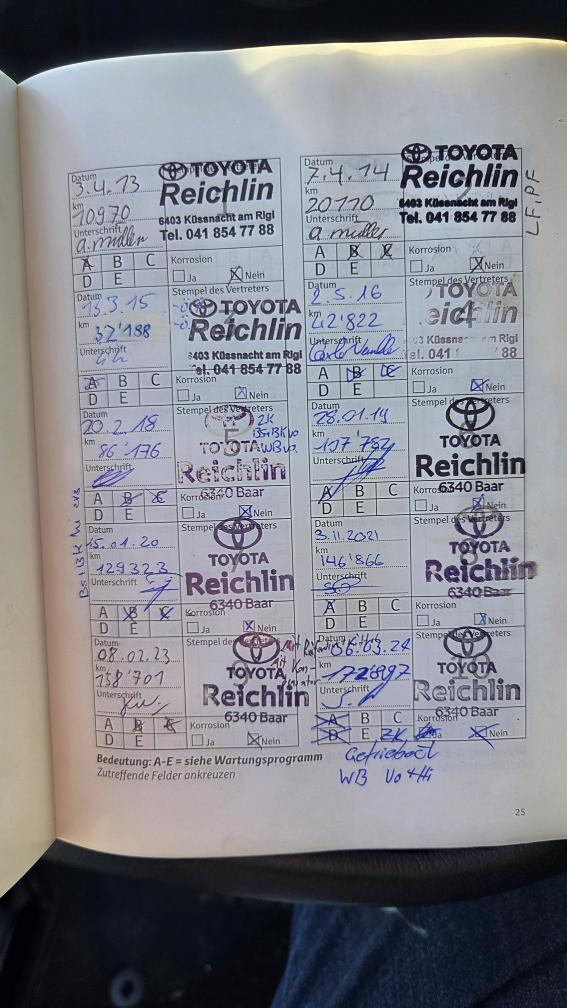 Datum
3.4.13
TOYOTA
Reichlin
km
10970
6403 Küssnacht am Rigi
Unterschrift
Tel. 041 854 77 88
a.müller
A B C
Korrosion
D E
Ja Nein
Datum
7.4.14
TOYOTA
Reichlin
km
20110
6403 Küssnacht am Rigi
Unterschrift
Tel. 041 854 77 88
a müller
LF, PF
A B C
Korrosion
D E
Ja Nein
Datum
Stempel des Vertreters
13.3.15
TOYOTA
km
Reichlin
32'188
6403 Küssnacht am Rigi
Unterschrift
Tel. 041 854 77 88
A B C
Korrosion
D E
Ja Nein
Datum
Stempel des Vertreters
2.5.16
TOYOTA
km
42'822
Unterschrift
A B C
Korrosion
D E
Ja Nein
Datum
Stempel des Vertreters
20.2.18
5
km
TOYOTA
86'176
Reichlin
Unterschrift
6340 Baar
A B C
Korrosion
D E
Ja Nein
Datum
Stempel des Vertreters
km
TOYOTA
107'782
Reichlin
Unterschrift
6340 Baar
A B C
Korrosion
D E
Ja Nein
Datum
Stempel des Vertreters
15.01.20
km
TOYOTA
129323
Reichlin
Unterschrift
6340 Baar
A B C
Korrosion
D E
Ja Nein
Datum
Stempel des Vertreters
3.11.2021
km
TOYOTA
146'866
Reichlin
Unterschrift
6340 Baar
A B C
Korrosion
D E
Ja Nein
Datum
Stempel des Vertreters
08.02.23
km
TOYOTA
158'701
Reichlin
Unterschrift
6340 Baar
A B C
Korrosion
D E
Ja Nein
Datum
Stempel des Vertreters
06.03.24
km
TOYOTA
172'897
Reichlin
Unterschrift
6340 Baar
A B C
Korrosion
D E
Ja Nein
WB Vo + Hi
Bedeutung: A-E = siehe Wartungsprogramm
Zutreffende Felder ankreuzen
25